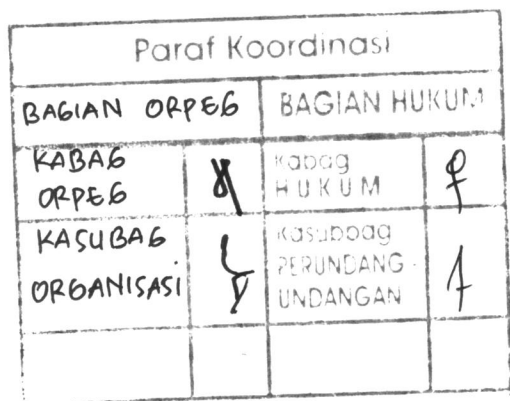 Paraf Koordinasi
BAGIAN ORPEG
BAGIAN HUKUM
KABAG
ORPEG
Kabag
HUKUM
KASUBAG
ORGANISASI
Kasubbag
PERUNDANG-
UNDANGAN